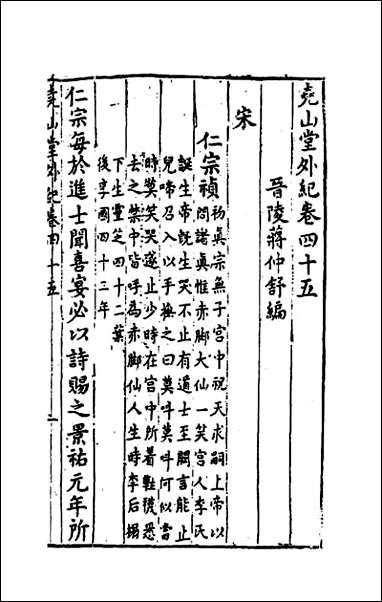 堯山堂外紀卷四十五
晉陵蔣仲舒編
宋
仁宗禎
初真宗無子宮中祝天求嗣上帝以
問諸真惟赤脚大仙一笑宮人李氏
誕生帝旣生哭不止有道士至闕言能止
兒啼召入以手撫之曰莫呌莫呌何似當
時莫笑哭遂止少時在宮中所着鞋襪悉
去之禁中皆呼為赤脚仙人生時李后榻
下生靈芝四十二葉
後享國四十三年
仁宗每於進士聞喜宴必以詩賜之景祐元年所
堯山堂外紀卷四十五
一